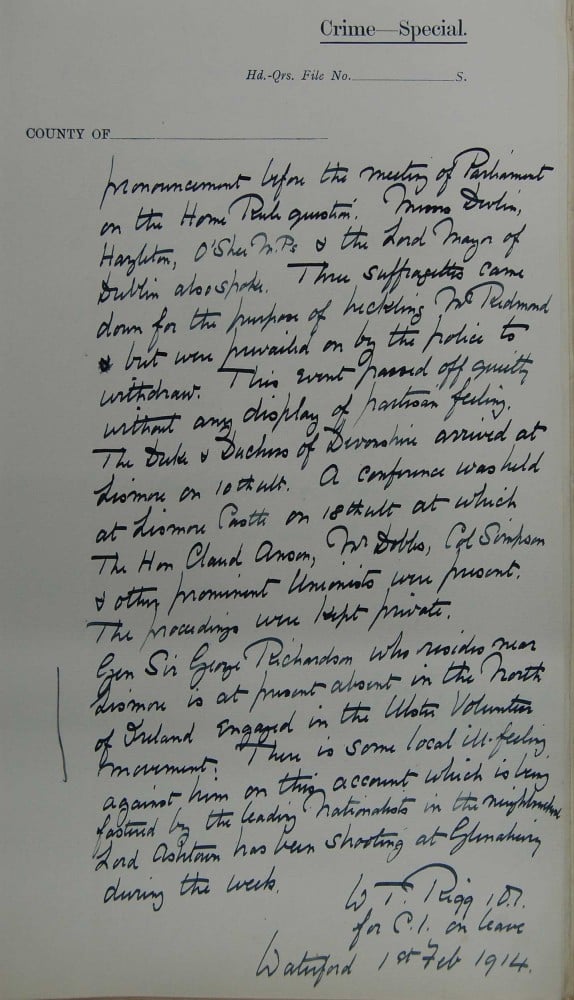 Crime—Special.
Hd.-Qrs. File No. S.
COUNTY OF
pronouncement before the meeting of Parliament
on the Home Rule question. Messrs Devlin,
Hazleton, O'Shee M.Ps & the Lord Mayor of
Dublin also spoke. Three suffragettes came
down for the purpose of heckling Mr Redmond
& but were prevailed on by the police to
withdraw. This event passed off quietly
without any display of partisan feeling.
The Duke & Duchess of Devonshire arrived at
Lismore on 10th ult. A conference was held
at Lismore Castle on 18th ult at which
The Hon Claud Anson, Mr Dobbs, Col Simpson
& other prominent Unionists were present.
The proceedings were kept private.
Gen Sir George Richardson who resides near
Lismore is at present absent in the North
of Ireland engaged in the Ulster Volunteer
movement. There is some local ill-feeling
against him on this account which is being
fostered by the leading Nationalists in the neighbourhood
Lord Ashtown has been shooting at Glenahiry
during the week.
W T. Rigg D.I.
for C.I. on leave
Waterford 1st Feb 1914.